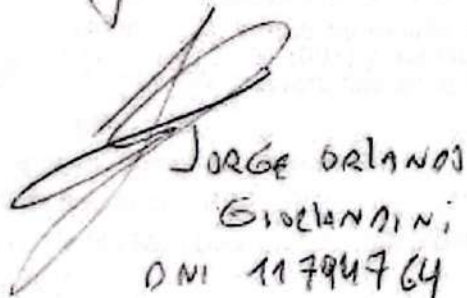 JORGE ORLANDO
GIORLANDINI
DNI 11794764